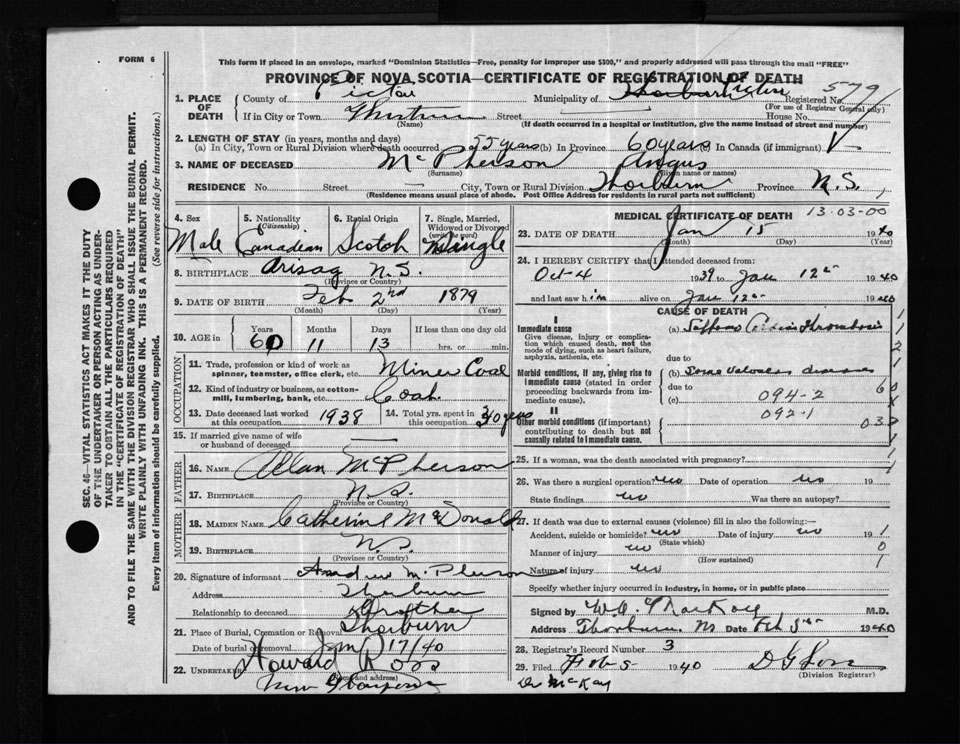 FORM 6
This form if placed in an envelope, marked "Dominion Statistics—Free, penalty for improper use $300," and properly addressed will pass through the mail "FREE"
PROVINCE OF NOVA SCOTIA—CERTIFICATE OF REGISTRATION OF DEATH
1. PLACE OF DEATH County of Pictou Municipality of Registered No. 579
(For use of Registrar General only)
If in City or Town Street House No.
(Name) (If death occurred in a hospital or institution, give the name instead of street and number)
2. LENGTH OF STAY (in years, months and days)
(a) In City, Town or Rural Division where death occurred 55 years (b) In Province 60 years In Canada (if immigrant)
3. NAME OF DECEASED McPherson Angus
(Surname) (Given name or names)
RESIDENCE No. — Street — City, Town or Rural Division Thorburn Province N.S.
(Residence means usual place of abode. Post Office Address for residents in rural parts not sufficient)
4. Sex 5. Nationality (Citizenship) 6. Racial Origin 7. Single, Married, Widowed or Divorced (write the word)
Male Canadian Scotch Single
8. BIRTHPLACE Arisag N.S.
(Province or Country)
9. DATE OF BIRTH Feb 2nd 1879
(Month) (Day) (Year)
10. AGE in Years Months Days If less than one day old
60 11 13 hrs. or min.
OCCUPATION
11. Trade, profession or kind of work as spinner, teamster, office clerk, etc. Miner Coal
12. Kind of industry or business, as cotton-mill, lumbering, bank, etc. Coal
13. Date deceased last worked at this occupation 1938 14. Total yrs. spent in this occupation
15. If married give name of wife or husband of deceased —
FATHER
16. Name Allan McPherson
17. Birthplace N.S.
(Province or Country)
MOTHER
18. Maiden Name Catherine McDonald
19. Birthplace N.S.
(Province or Country)
20. Signature of informant Andrew McPherson
Address Thorburn
Relationship to deceased Brother
21. Place of Burial, Cremation or Removal Thorburn
Date of burial or removal Jan 17/40
22. Undertaker Howard Ross
(Name and address)
New Glasgow
MEDICAL CERTIFICATE OF DEATH 13-03-00
23. DATE OF DEATH Jan 15 1940
(Month) (Day) (Year)
24. I HEREBY CERTIFY that I attended deceased from:
Oct 4 1939 to Jan 12 1940
and last saw him alive on Jan 12 1940
CAUSE OF DEATH
I
Immediate cause
Give disease, injury or complication which caused death, not the mode of dying, such as heart failure, asphyxia, asthenia, etc.
(a) Thrombosis
due to
Morbid conditions, if any, giving rise to immediate cause (stated in order proceeding backwards from immediate cause).
(b) Some disease
due to
(c) 094-2
092-1
II
Other morbid conditions (if important) contributing to death but not causally related to immediate cause.
25. If a woman, was the death associated with pregnancy?
26. Was there a surgical operation? no Date of operation no 19
State findings no Was there an autopsy?
27. If death was due to external causes (violence) fill in also the following:—
Accident, suicide or homicide? no Date of injury no 19
(State which)
Manner of injury no
(How sustained)
Nature of injury no
Specify whether injury occurred in industry, in home, or in public place
Signed by MacKay M.D.
Address Thorburn NS Date Feb 5 1940
28. Registrar's Record Number 3
29. Filed Feb 5 1940 D G Ross
(Division Registrar)
Dr McKay
SEC. 46—VITAL STATISTICS ACT MAKES IT THE DUTY
OF THE UNDERTAKER OR PERSON ACTING AS UNDER-
TAKER TO OBTAIN ALL THE PARTICULARS REQUIRED
IN THE "CERTIFICATE OF REGISTRATION OF DEATH"
AND TO FILE THE SAME WITH THE DIVISION REGISTRAR WHO SHALL ISSUE THE BURIAL PERMIT.
WRITE PLAINLY WITH UNFADING INK. THIS IS A PERMANENT RECORD.
Every item of information should be carefully supplied. (See reverse side for instructions.)